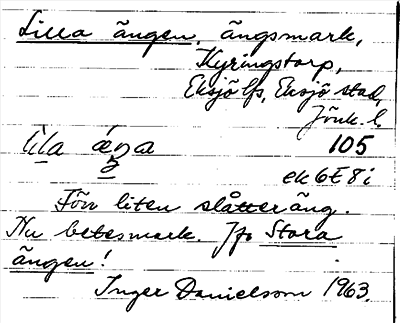 Lilla ängen, ängsmark,
Kyringstorp,
Eksjö lfs, Eksjö stad,
Jönk. l.
lìla ǽŋa 105
ek 6E8i
Förr liten slåtteräng.
Nu betesmark. Jfr Stora
ängen!
Inger Danielsson 1963.